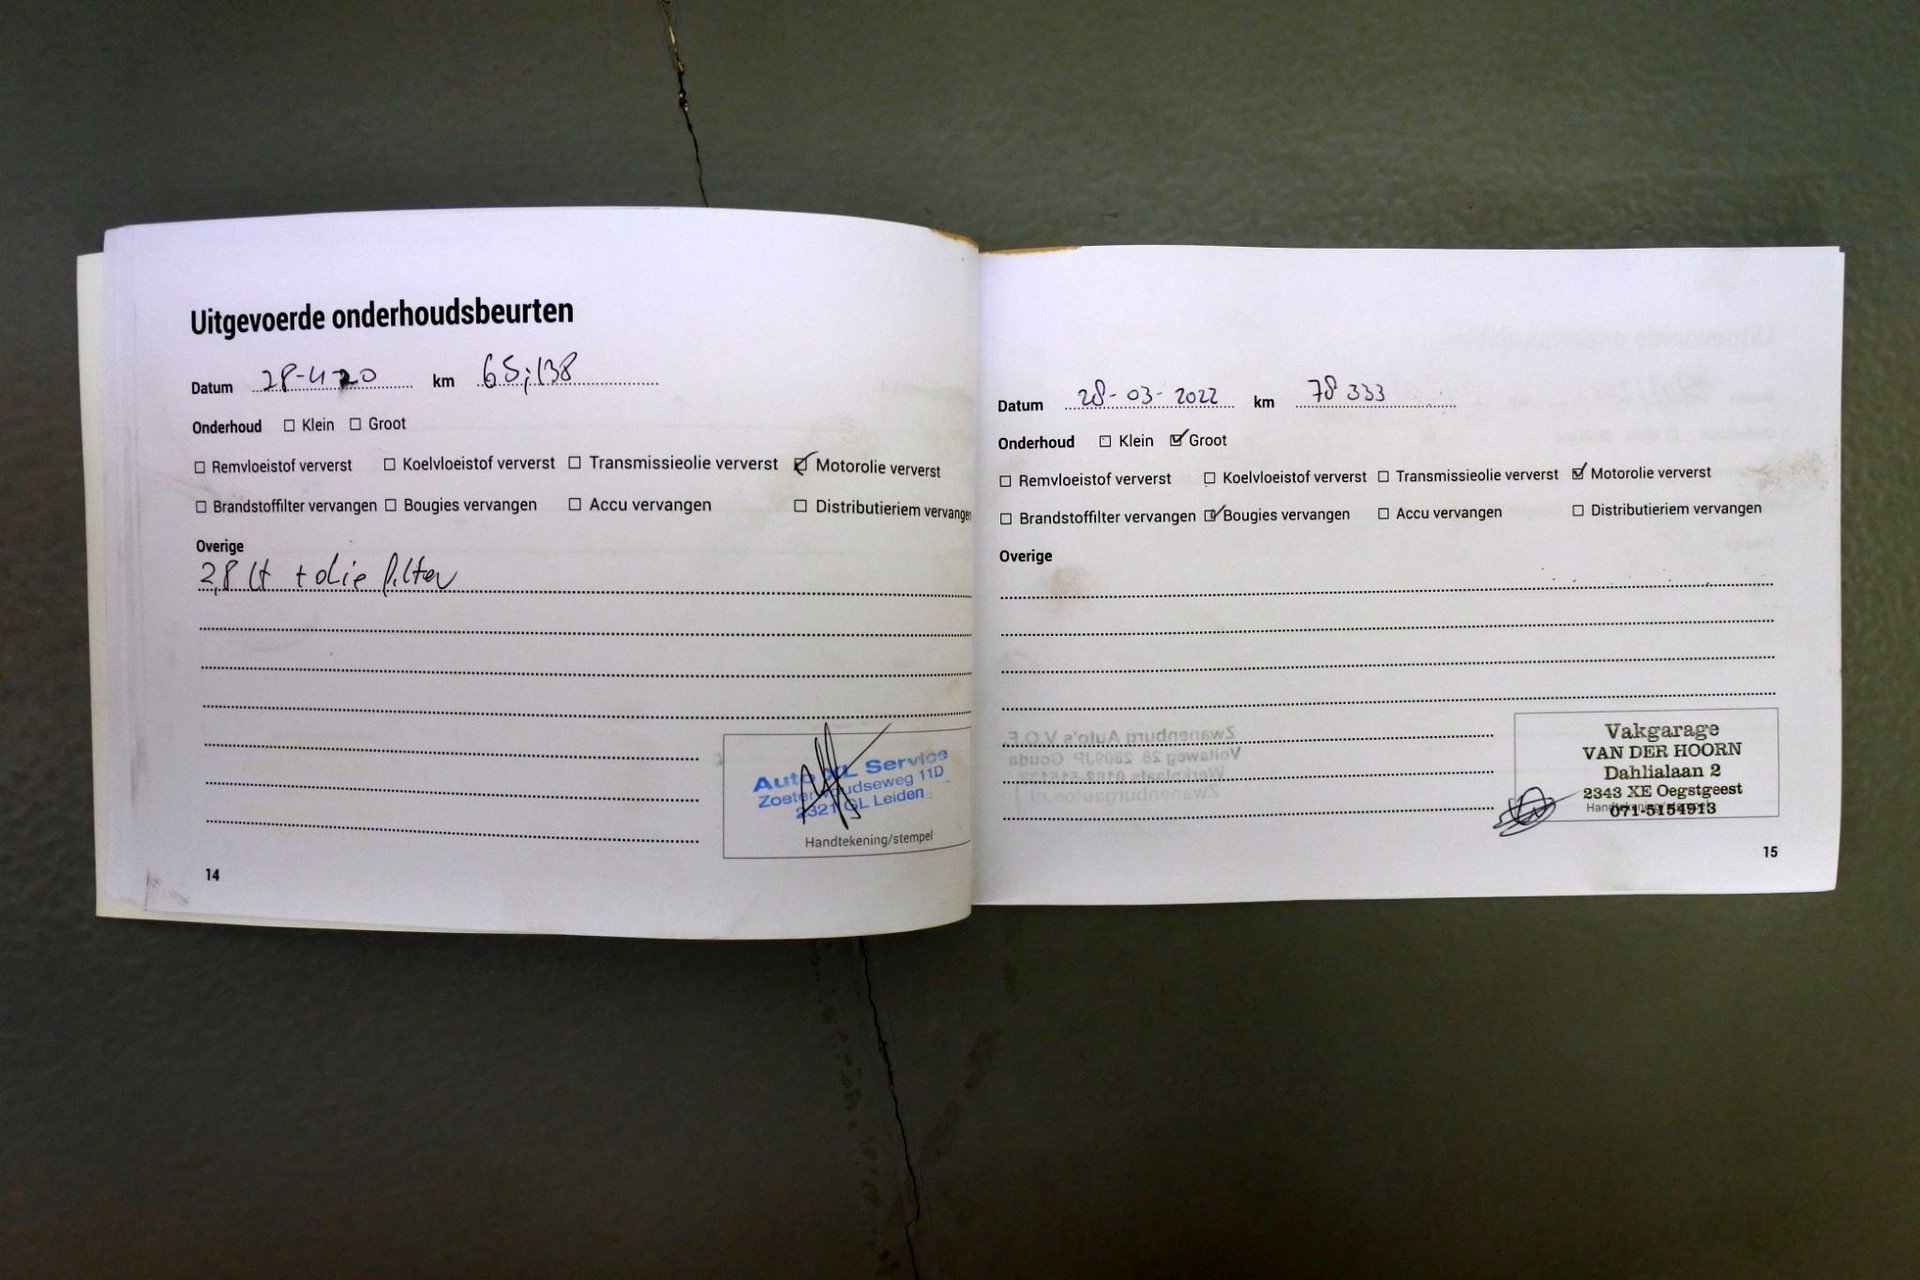 Uitgevoerde onderhoudsbeurten
Datum 28-4-20 km 65,138
Onderhoud ☐ Klein ☐ Groot
☐ Remvloeistof ververst ☐ Koelvloeistof ververst ☐ Transmissieolie ververst ☑ Motorolie ververst
☐ Brandstoffilter vervangen ☐ Bougies vervangen ☐ Accu vervangen ☐ Distributieriem vervangen
Overige
2,8 lt + olie filter
Auto XL Service
Zoeterwoudseweg 11D
2321 GL Leiden
Handtekening/stempel
14
Datum 28-03-2022 km 78 333
Onderhoud ☐ Klein ☑ Groot
☐ Remvloeistof ververst ☐ Koelvloeistof ververst ☐ Transmissieolie ververst ☑ Motorolie ververst
☐ Brandstoffilter vervangen ☑ Bougies vervangen ☐ Accu vervangen ☐ Distributieriem vervangen
Overige
Zwanenburg Auto's V.O.F.
Voltaweg 28 2809JP Gouda
Vakgarage
VAN DER HOORN
Dahlialaan 2
2343 XE Oegstgeest
Handtekening/stempel
071-5154913
15